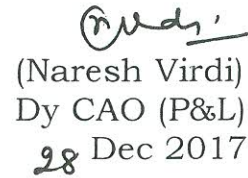 (Naresh Virdi)
Dy CAO (P&L)
28 Dec 2017